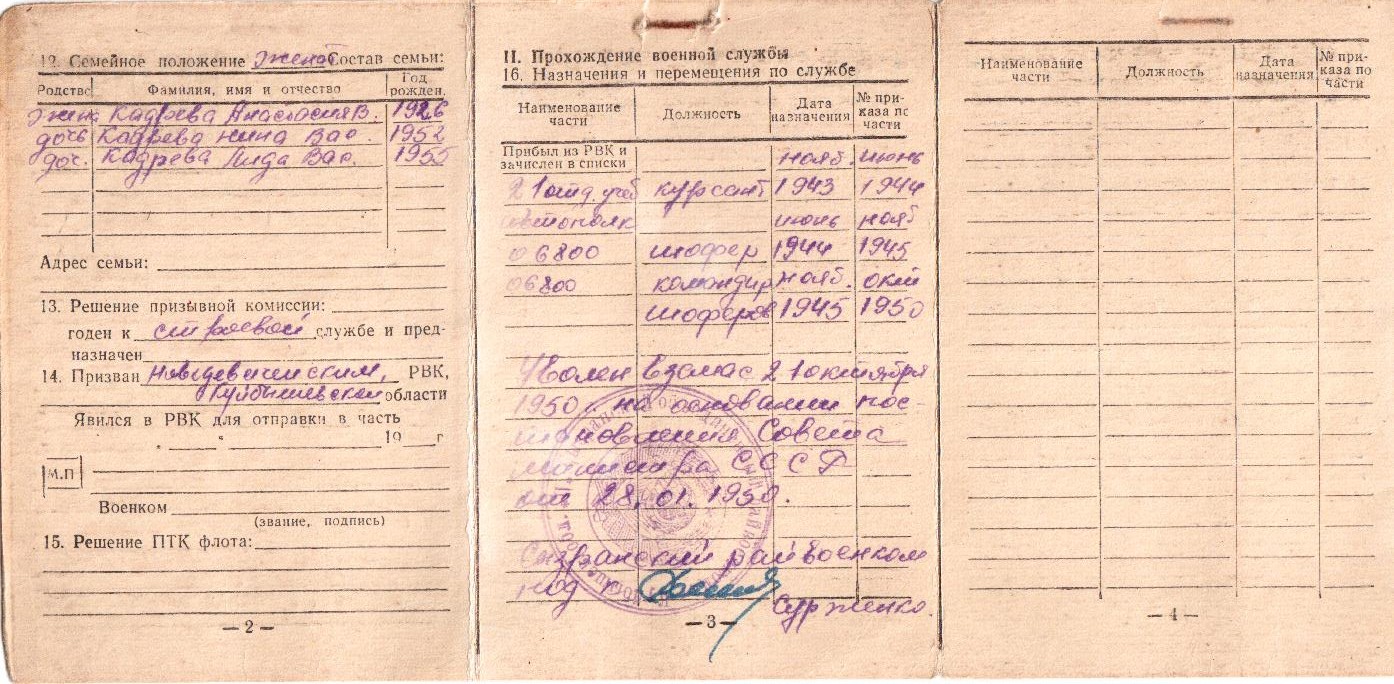 12. Семейное положение женат Состав семьи:
Родство Фамилия, имя и отчество Год рожден.
жена Кадрева Анастасия В. 1926
дочь Кадрева Нина Вас. 1952
доч. Кадрева Лида Вас. 1955
Адрес семьи:
13. Решение призывной комиссии:
годен к строевой службе и пред-
назначен
14. Призван Новодевиченским, РВК,
Куйбышевской области
Явился в РВК для отправки в часть
" " 19 г
М.П
Военком
(звание, подпись)
15. Решение ПТК флота:
— 2 —
II. Прохождение военной службы
16. Назначения и перемещения по службе
Наименование части Должность Дата назначения № при-каза по части
Прибыл из РВК и
зачислен в списки нояб. июнь
21 учеб курсант 1943 1944
автополк июнь нояб
06800 шофер 1944 1945
06800 командир нояб. окт
шоферов 1945 1950
Уволен в запас 21 октября
1950 на основании пос-
тановления Совета
министров СССР
от 28.01.1950.
Сызранский райвоенком
Сурженко.
— 3 —
Наименование части Должность Дата назначения № при-каза по части
— 4 —